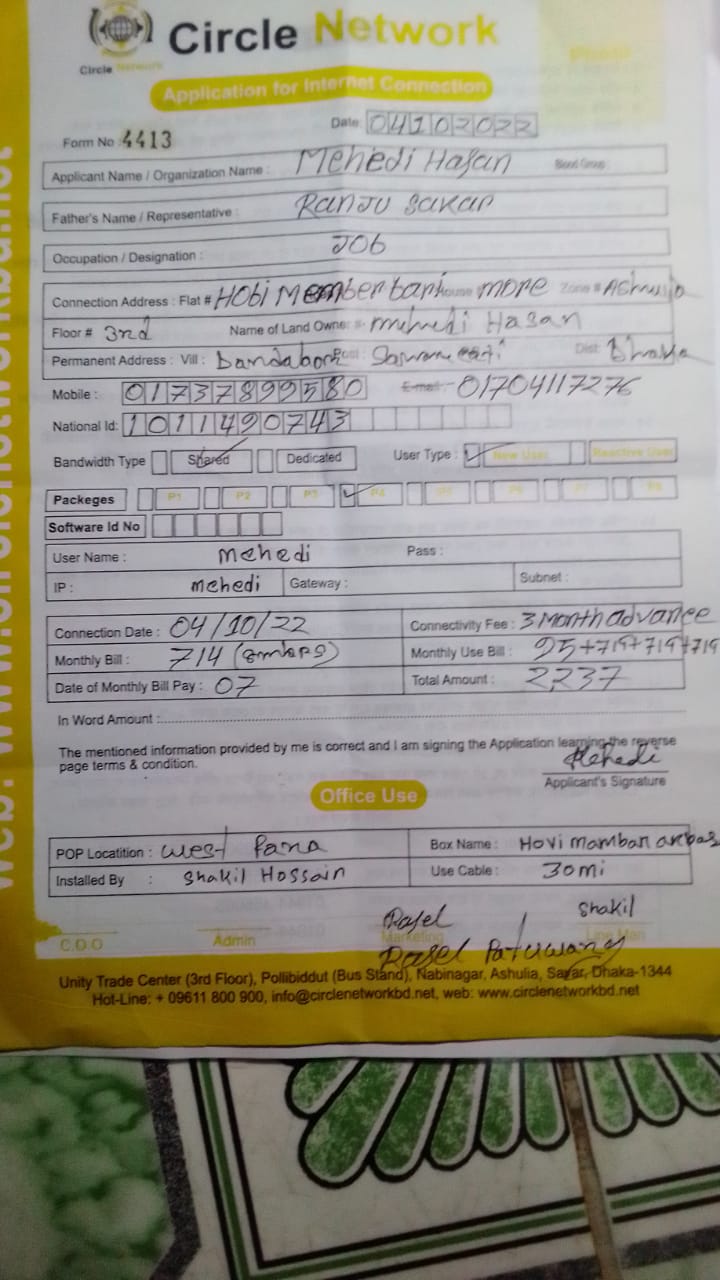 Circle Network
Circle Network
Application for Internet Connection
Date: 04102022
Form No :4413
Applicant Name / Organization Name : Mehedi Hasan Blood Group :
Father's Name / Representative : Ranju Sarkar
Occupation / Designation : Job
Connection Address : Flat # Hobi Member bari House more Zone #
Floor # 3rd Name of Land Owner #: mehedi Hasan
Permanent Address : Vill : Post : Dist: Dhaka
Mobile : 01737899580 E-mail : 01704117276
National Id: 1011490743
Bandwidth Type Shared Dedicated User Type : New User Reactive User
Packeges P1 P2 P3 P4 P5 P6 P7 P8
Software Id No
User Name : mehedi Pass :
IP : mehedi Gateway : Subnet :
Connection Date : 04/10/22 Connectivity Fee : 3 Month advance
Monthly Bill : 714 (8mbps) Monthly Use Bill : 95+719+719+719
Date of Monthly Bill Pay : 07 Total Amount : 2237
In Word Amount :
The mentioned information provided by me is correct and I am signing the Application learning the reverse
page terms & condition.
Mehedi
Applicant's Signature
Office Use
POP Locatition : west Para Box Name : Hovi mamban
Installed By : Shakil Hossain Use Cable : 30mi
Rasel Shakil
C.O.O Admin Marketing Line Man
Rasel
Unity Trade Center (3rd Floor), Pollibiddut (Bus Stand), Nabinagar, Ashulia, Savar, Dhaka-1344
Hot-Line: + 09611 800 900, info@circlenetworkbd.net, web: www.circlenetworkbd.net
web: www.circlenetworkbd.net